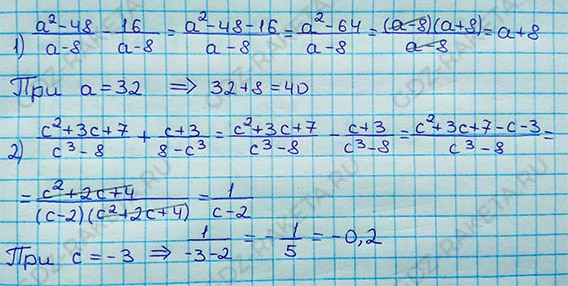 1) (a²-48)/(a-8) - 16/(a-8) = (a²-48-16)/(a-8) = (a²-64)/(a-8) = ((a-8)(a+8))/(a-8) = a+8
При a=32 ⇒ 32+8=40
2) (c²+3c+7)/(c³-8) + (c+3)/(8-c³) = (c²+3c+7)/(c³-8) - (c+3)/(c³-8) = (c²+3c+7-c-3)/(c³-8) =
= (c²+2c+4)/((c-2)(c²+2c+4)) = 1/(c-2)
При c=-3 ⇒ 1/(-3-2) = -1/5 = -0,2
GDZ-RAKETA.RU